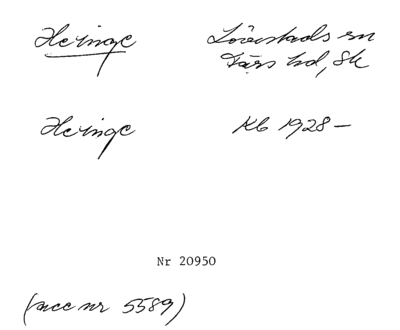 Heinge Lövestads sn
Färs hd, Sk
Heinge Kb 1928 –
Nr 20950
(acc nr 5589)